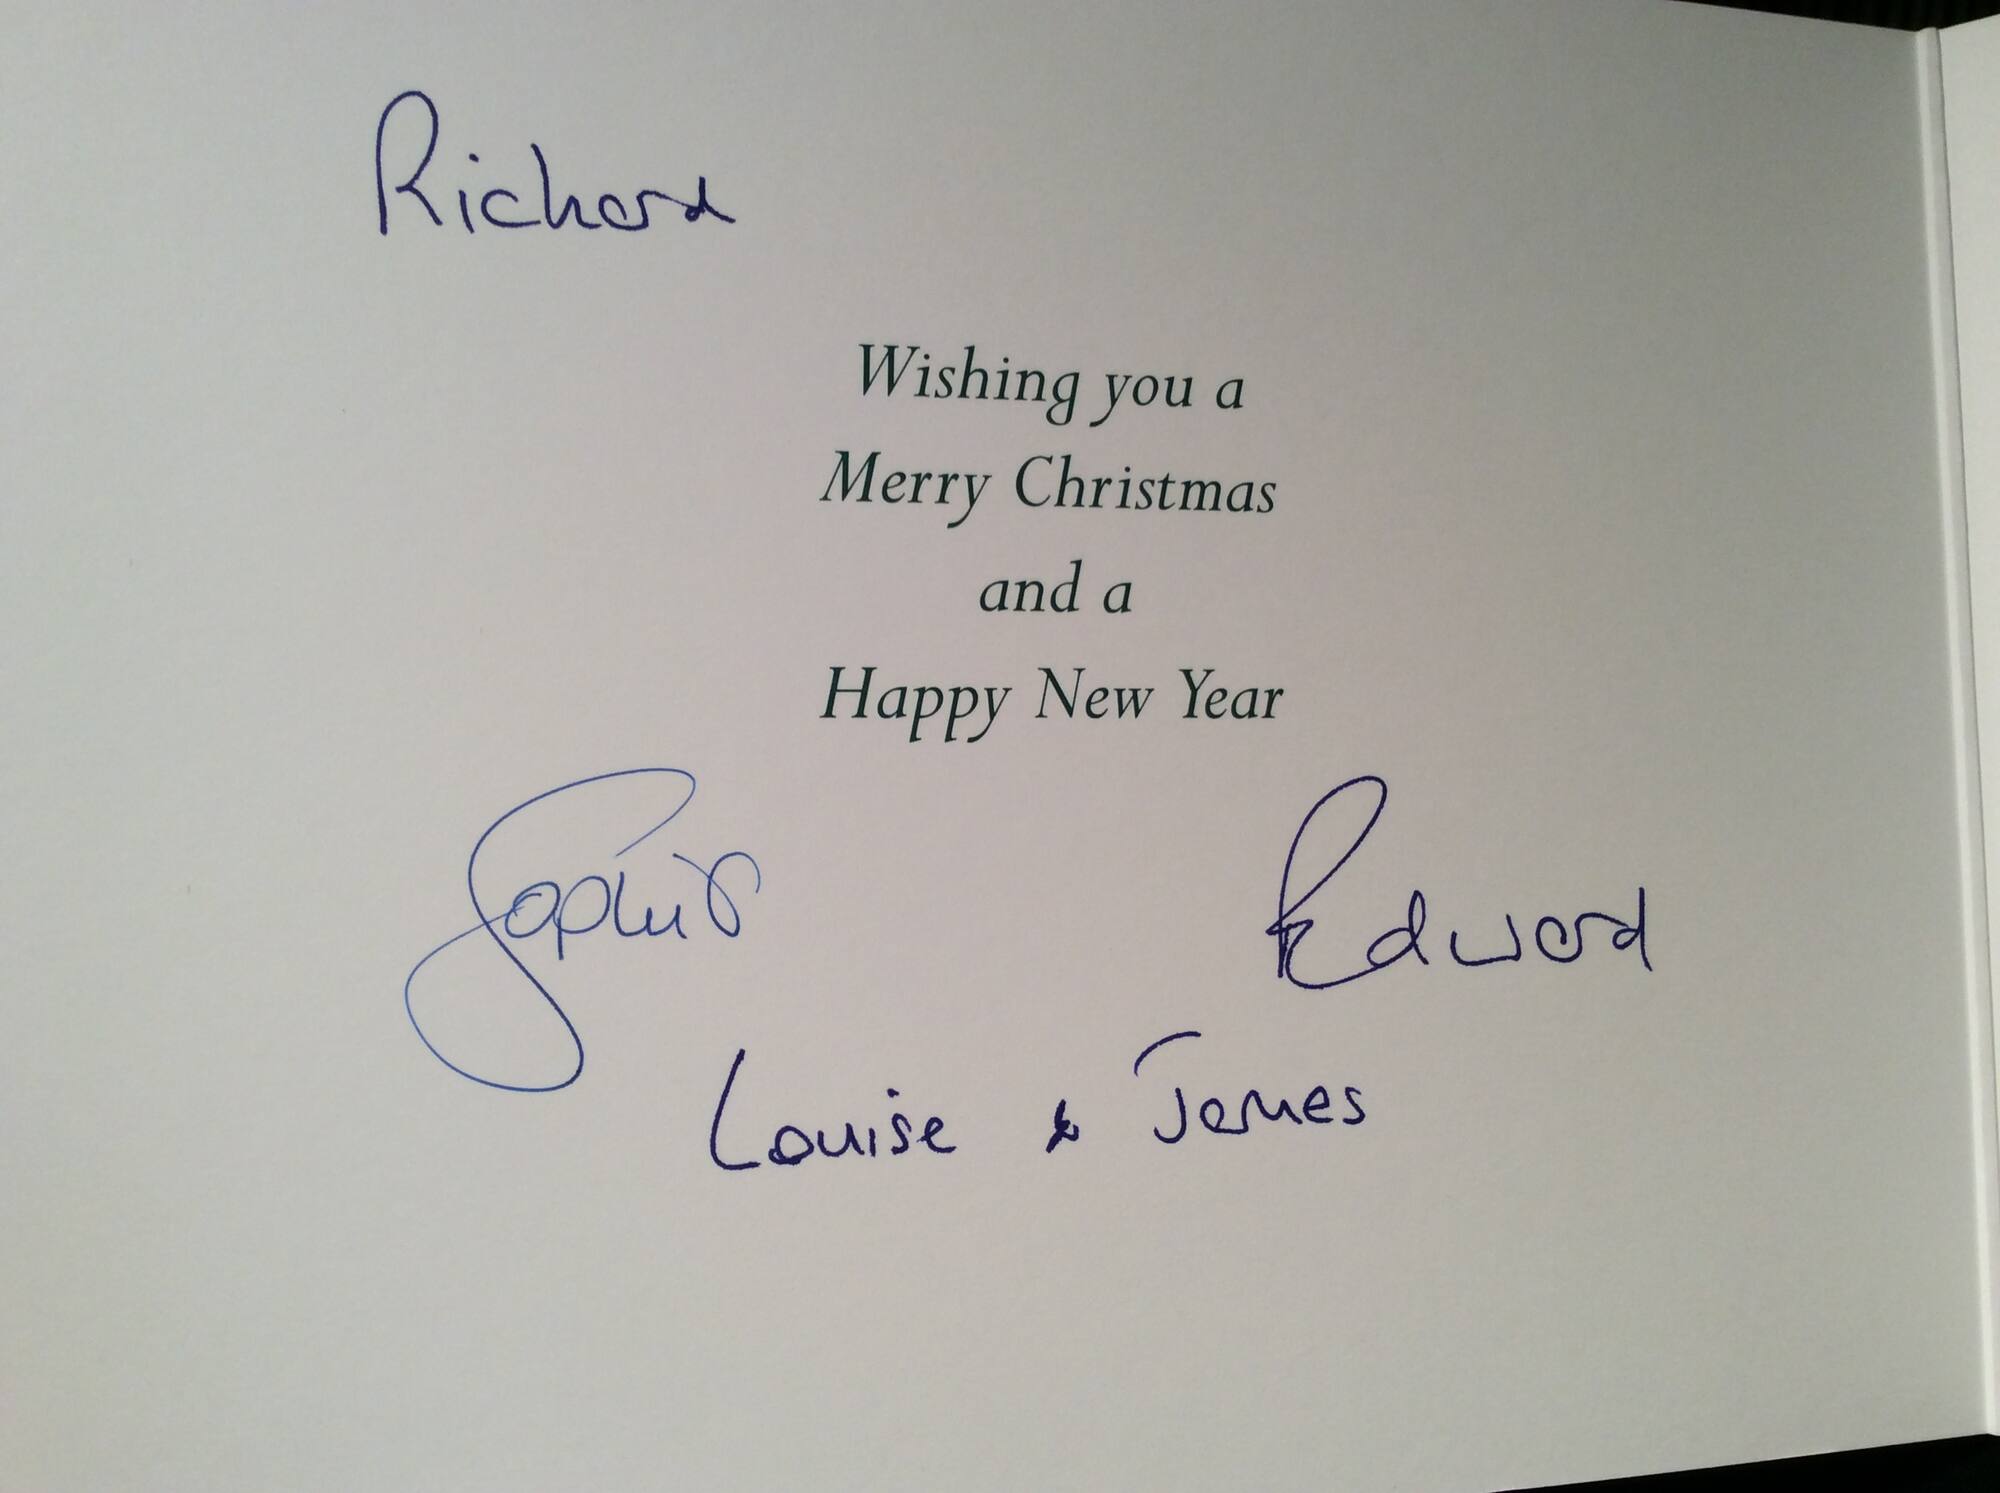 Richard
Wishing you a
Merry Christmas
and a
Happy New Year
Sophie
Edward
Louise & James